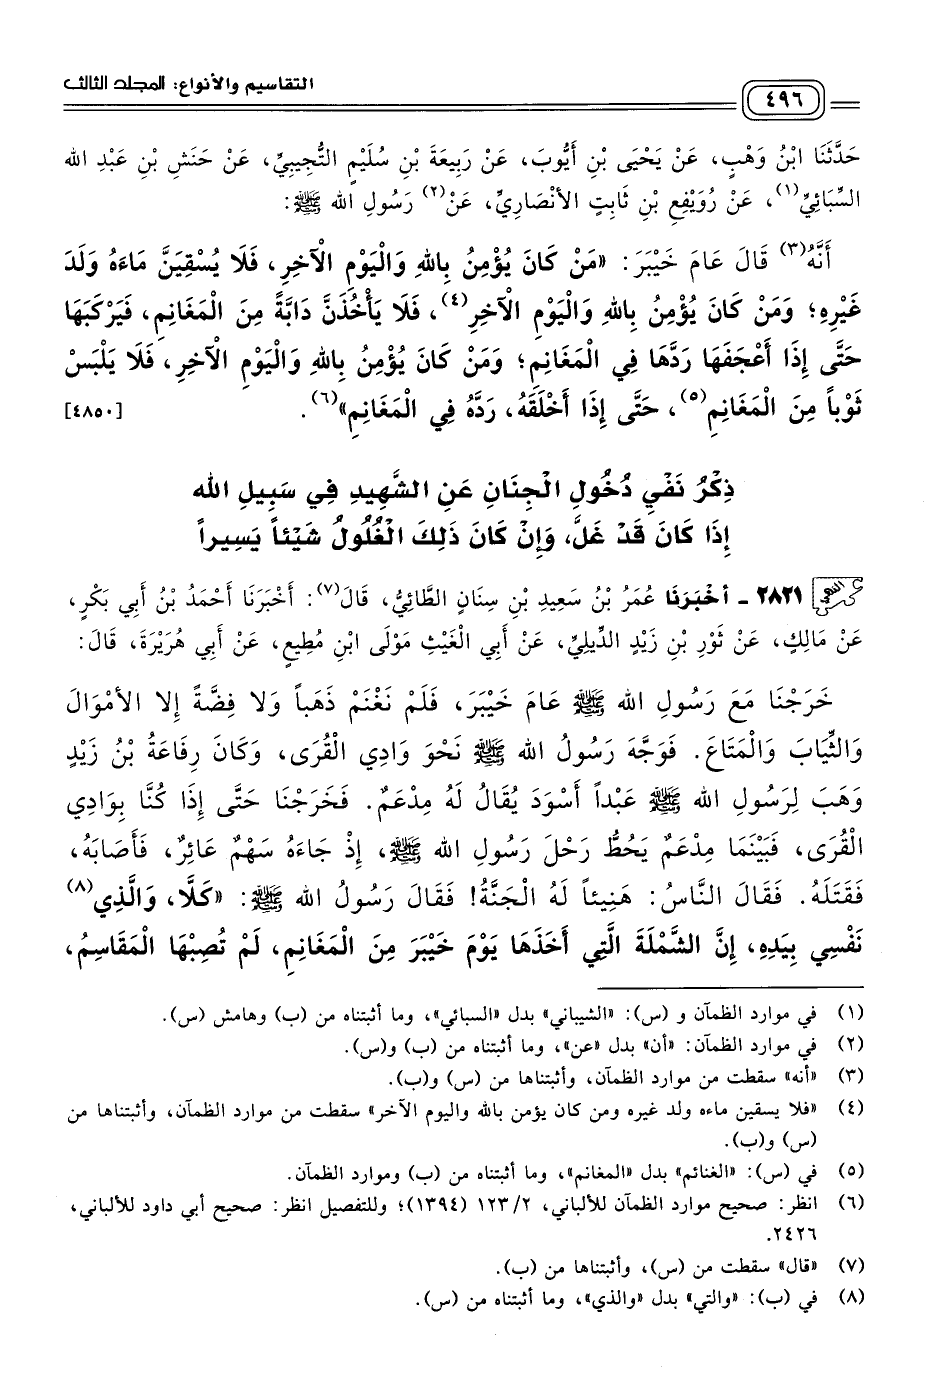 التقاسيم والأنواع: المجلد الثالث
٤٩٦
حَدَّثَنَا ابْنُ وَهْبٍ، عَنْ يَحْيَى بْنِ أَيُّوبَ، عَنْ رَبِيعَةَ بْنِ سُلَيْمٍ التُّجِيبِيِّ، عَنْ حَنَشِ بْنِ عَبْدِ الله
السِّبَائِيِّ(١)، عَنْ رُوَيْفِعِ بْنِ ثَابِتٍ الأَنْصَارِيِّ، عَنْ(٢) رَسُولِ الله ﷺ:
أَنَّهُ(٣) قَالَ عَامَ خَيْبَرَ: «مَنْ كَانَ يُؤْمِنُ بِاللهِ وَالْيَوْمِ الْآخِرِ، فَلَا يُسْقِيَنَّ مَاءَهُ وَلَدَ
غَيْرِهِ؛ وَمَنْ كَانَ يُؤْمِنُ بِاللهِ وَالْيَوْمِ الْآخِرِ(٤)، فَلَا يَأْخُذَنَّ دَابَّةً مِنَ الْمَغَانِمِ، فَيَرْكَبَهَا
حَتَّى إِذَا أَعْجَفَهَا رَدَّهَا فِي الْمَغَانِمِ؛ وَمَنْ كَانَ يُؤْمِنُ بِاللهِ وَالْيَوْمِ الْآخِرِ، فَلَا يَلْبَسْ
ثَوْباً مِنَ الْمَغَانِمِ(٥)، حَتَّى إِذَا أَخْلَقَهُ، رَدَّهُ فِي الْمَغَانِمِ»(٦). [٤٨٥٠]
ذِكْرُ نَفْيِ دُخُولِ الْجِنَانِ عَنِ الشَّهِيدِ فِي سَبِيلِ الله
إِذَا كَانَ قَدْ غَلَّ، وَإِنْ كَانَ ذَلِكَ الْغُلُولُ شَيْئاً يَسِيراً
٢٨٢١ ـ أَخْبَرَنَا عُمَرُ بْنُ سَعِيدِ بْنِ سِنَانٍ الطَّائِيُّ، قَالَ(٧): أَخْبَرَنَا أَحْمَدُ بْنُ أَبِي بَكْرٍ،
عَنْ مَالِكٍ، عَنْ ثَوْرِ بْنِ زَيْدٍ الدِّيلِيِّ، عَنْ أَبِي الْغَيْثِ مَوْلَى ابْنِ مُطِيعٍ، عَنْ أَبِي هُرَيْرَةَ، قَالَ:
خَرَجْنَا مَعَ رَسُولِ الله ﷺ عَامَ خَيْبَرَ، فَلَمْ نَغْنَمْ ذَهَباً وَلَا فِضَّةً إِلا الأَمْوَالَ
وَالثِّيَابَ وَالْمَتَاعَ. فَوَجَّهَ رَسُولُ الله ﷺ نَحْوَ وَادِي الْقُرَى، وَكَانَ رِفَاعَةُ بْنُ زَيْدٍ
وَهَبَ لِرَسُولِ الله ﷺ عَبْداً أَسْوَدَ يُقَالُ لَهُ مِدْعَمٌ. فَخَرَجْنَا حَتَّى إِذَا كُنَّا بِوَادِي
الْقُرَى، فَبَيْنَمَا مِدْعَمٌ يَحُطُّ رَحْلَ رَسُولِ الله ﷺ، إِذْ جَاءَهُ سَهْمٌ عَائِرٌ، فَأَصَابَهُ،
فَقَتَلَهُ. فَقَالَ النَّاسُ: هَنِيئاً لَهُ الْجَنَّةُ! فَقَالَ رَسُولُ الله ﷺ: «كَلَّا، وَالَّذِي(٨)
نَفْسِي بِيَدِهِ، إِنَّ الشَّمْلَةَ الَّتِي أَخَذَهَا يَوْمَ خَيْبَرَ مِنَ الْمَغَانِمِ، لَمْ تُصِبْهَا الْمَقَاسِمُ،
(١) في موارد الظمآن و (س): «الشيباني» بدل «السبائي»، وما أثبتناه من (ب) وهامش (س).
(٢) في موارد الظمآن: «أن» بدل «عن»، وما أثبتناه من (ب) و(س).
(٣) «أنه» سقطت من موارد الظمآن، وأثبتناها من (س) و(ب).
(٤) «فلا يسقين ماءه ولد غيره ومن كان يؤمن بالله واليوم الآخر» سقطت من موارد الظمآن، وأثبتناها من
(س) و(ب).
(٥) في (س): «الغنائم» بدل «المغانم»، وما أثبتناه من (ب) وموارد الظمآن.
(٦) انظر: صحيح موارد الظمآن للألباني، ١٢٣/٢ (١٣٩٤)؛ وللتفصيل انظر: صحيح أبي داود للألباني،
٢٤٢٦.
(٧) «قال» سقطت من (س)، وأثبتناها من (ب).
(٨) في (ب): «والتي» بدل «والذي»، وما أثبتناه من (س).